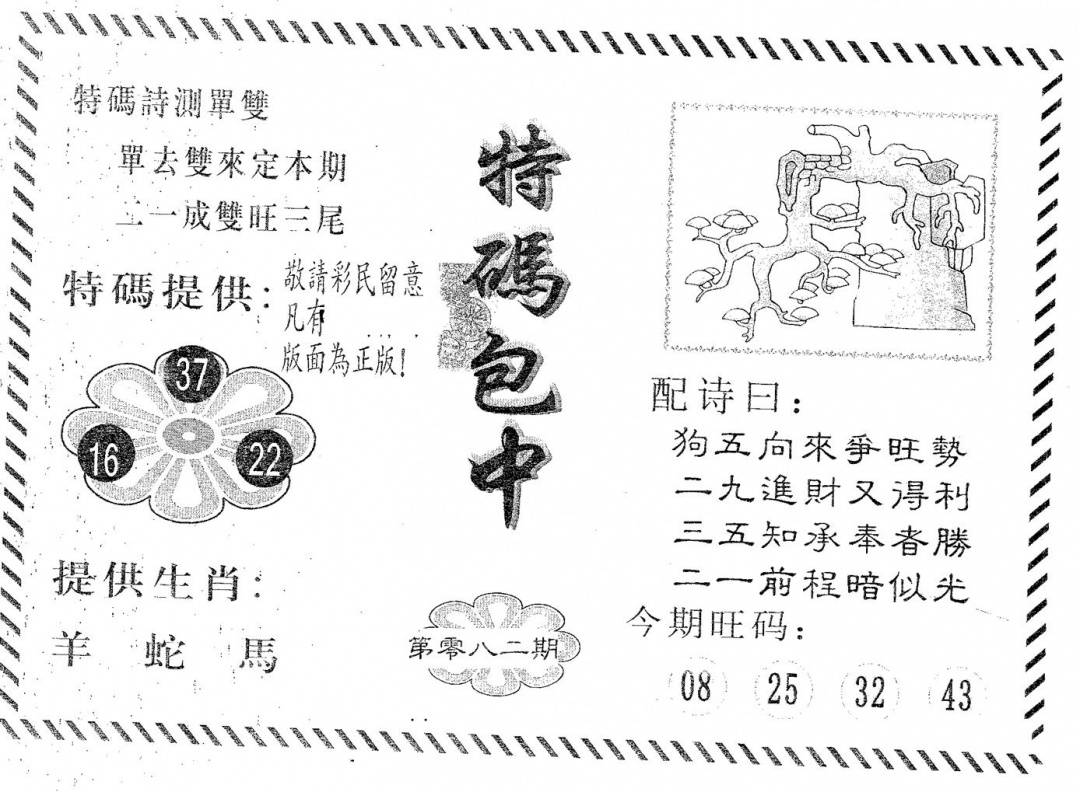 特碼詩測單雙
單去雙來定本期
二一成雙旺三尾
特碼提供:
敬請彩民留意
凡有 ....
版面為正版!
37
16
22
提供生肖:
羊 蛇 馬
特碼包中
第零八二期
配诗曰:
狗五向來爭旺勢
二九進財又得利
三五知承奉者勝
二一前程暗似光
今期旺码:
08 25 32 43